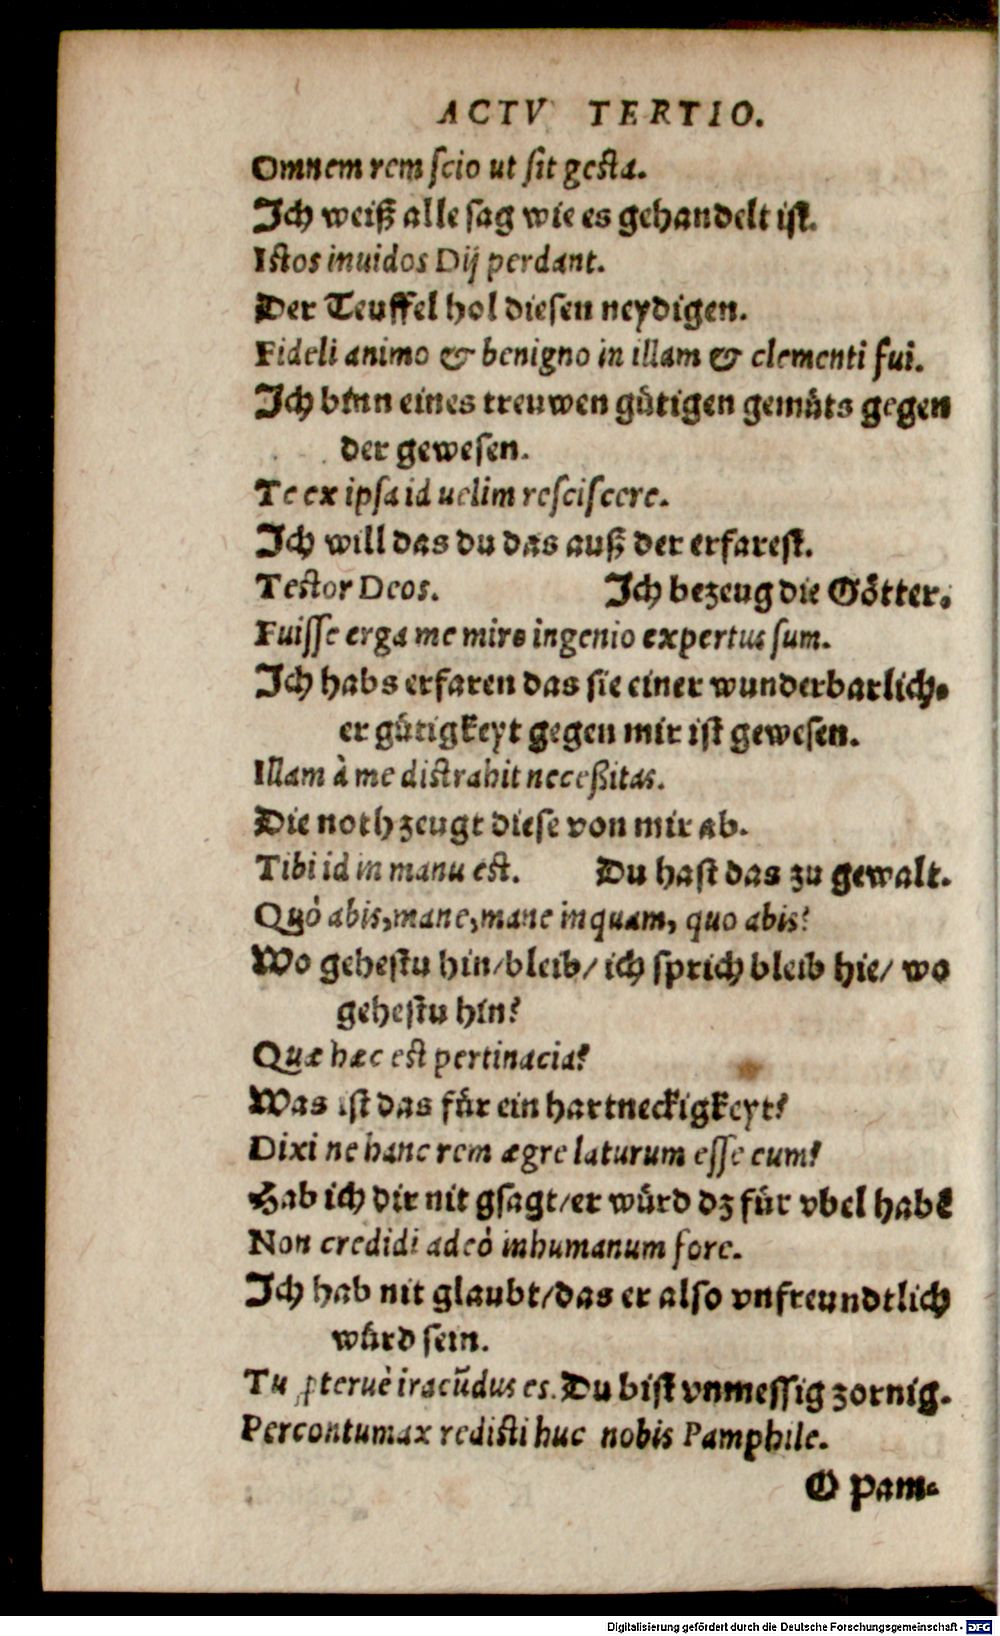 ACTV TERTIO.
Omnem rem scio ut sit gesta.
Ich weiß alle sag wie es gehandelt ist.
Istos inuidos Dij perdant.
Der Teuffel hol diesen neydigen.
Fideli animo & benigno in illam & clementi fui.
Ich binn eines treuwen gütigen gemüts gegen
der gewesen.
Te ex ipsa id uelim resciscere.
Ich will das du das auß der erfarest.
Testor Deos. Ich bezeug die Götter.
Fuisse erga me miro ingenio expertus sum.
Ich habs erfaren das sie einer wunderbarlich-
er gütigkeyt gegen mir ist gewesen.
Illam à me distrahit neceßitas.
Die noth zeugt diese von mir ab.
Tibi id in manu est. Du hast das zu gewalt.
Quò abis, mane, mane inquam, quo abis?
Wo gehestu hin/bleib/ ich sprich bleib hie/ wo
gehestu hin?
Quæ hæc est pertinacia?
Was ist das für ein hartneckigkeyt?
Dixi ne hanc rem ægre laturum esse eum?
Hab ich dir nit gsagt/er würd dz für vbel habē
Non credidi adeò inhumanum fore.
Ich hab nit glaubt/das er also vnfreundtlich
würd sein.
Tu ꝓteruè iracūdus es. Du bist vnmessig zornig.
Percontumax redisti huc nobis Pamphile.
O Pam-
Digitalisierung gefördert durch die Deutsche Forschungsgemeinschaft - DFG